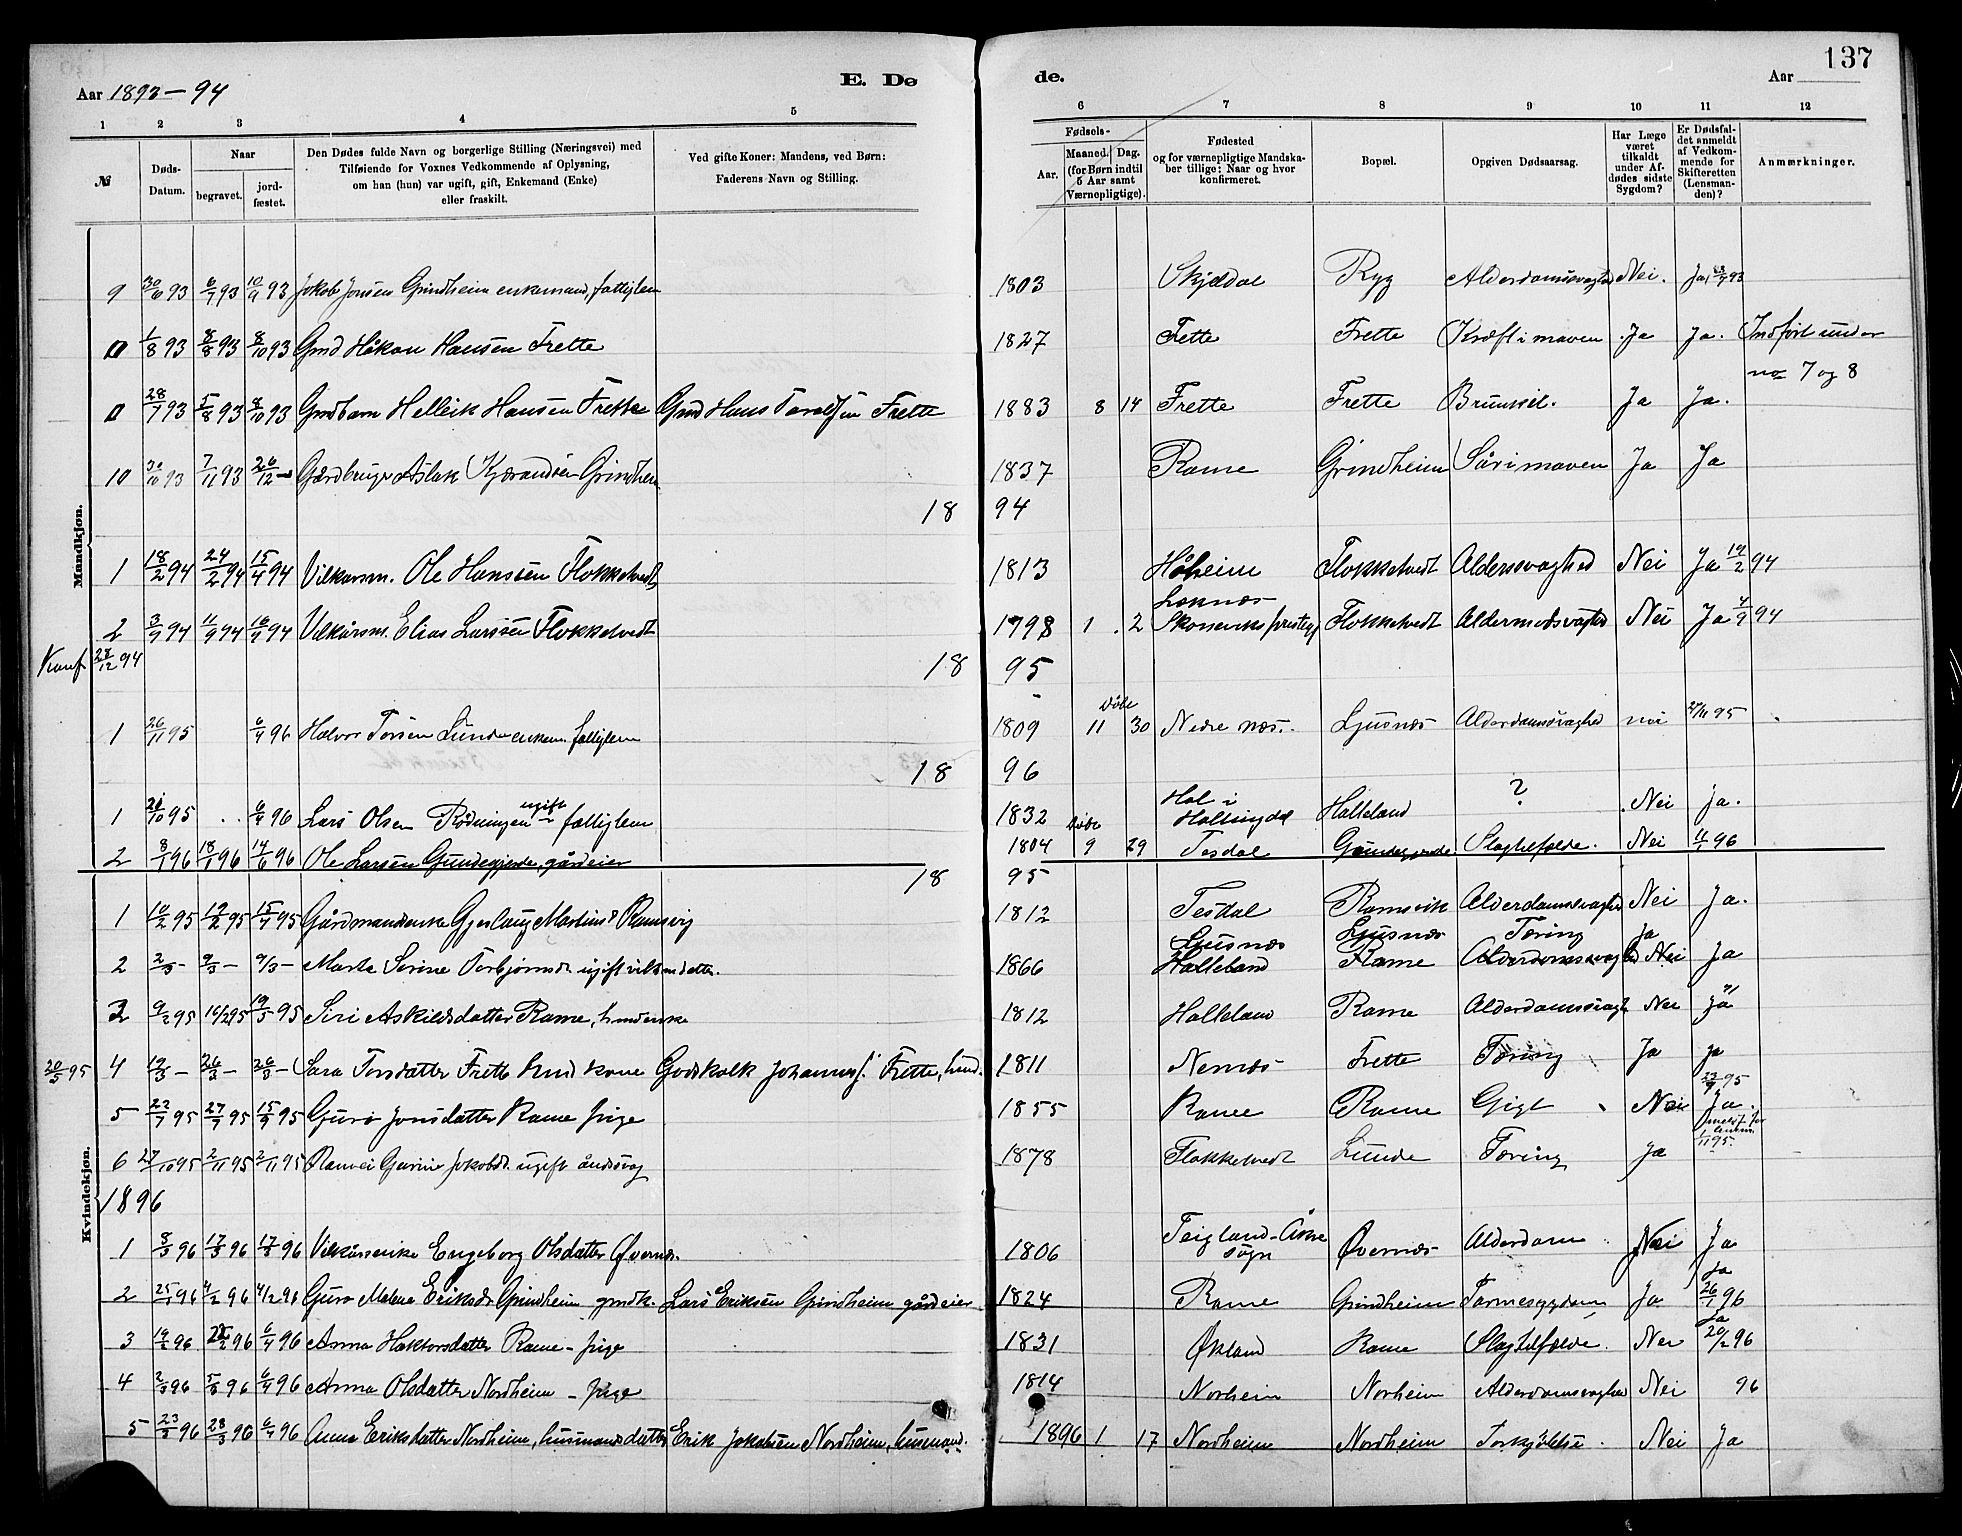 137
Aar 1893-94 E. Dø de. Aar
1 2 3 4 5 6 7 8 9 10 11 12
№
Døds-Datum.
Naar
begravet.
jord-fæstet.
Den Dødes fulde Navn og borgerlige Stilling (Næringsvei) med
Tilføiende for Voxnes Vedkommende af Oplysning,
om han (hun) var ugift, gift, Enkemand (Enke)
eller fraskilt.
Ved gifte Koner: Mandens, ved Børn:
Faderens Navn og Stilling.
Fødsels-
Aar.
Maaned. Dag.
(for Børn indtil
5 Aar samt
Værnepligtige).
Fødested
og for værnepligtige Mandska-
ber tillige: Naar og hvor
konfirmeret.
Bopæl.
Opgiven Dødsaarsag.
Har Læge
været
tilkaldt
under Af-
dødes sidste
Sygdom?
Er Dødsfal-
det anmeldt
af Vedkom-
mende for
Skifteretten
(Lensman-
den)?
Anmærkninger.
Mandkjøn.
9 30/6 93 6/7 93 10/9 93 Jokob Jonsen Grindheim enkemand, fattiglem 1803 Skjeldal Ryg Alderdomssvaghed Nei. Ja 93
1/8 93 8/8 93 8/10 93 Gmd Håkon Hansen Frette 1827 Frette Frette Kræft i maven Ja Ja. Indført under
no 7 og 8
28/7 93 5/8 93 8/10 93 Gmdbarn Helleik Hansen Frette Gmd Hans Frette 1883 8 14 Frette Frette Ja Ja.
10 30/10 93 7/11 93 26/12 - Aslak Grindheim 1837 Rame Grindheim Sår i maven Ja Ja
18 94
1 18/2 94 24/2 94 15/4 94 Vilkårsm. Ole Hanssen Flokketvedt 1813 Håheim Flokketvedt Alderssvaghed Nei Ja 19/2 94
2 3/9 94 11/9 94 16/9 94 Vilkårsm. Elias Larssen Flokketvedt 1798 1 2 Læknæs Flokketvedt Nei Ja 4/9 94
94
18 95
1 26/11 95 6/4 96 Halvor Torsen Lunde enkem. fattiglem 1809 døbt 11 30 Nedre næs. Ljusnæs Alderdomssvaghed nei 27/11 95
18 96
1 /10 95 6/4 96 Lars Olsen Rødningen ugift fattiglem 1832 Hol i Hallingdal Halleland ? Nei ja.
2 8/1 96 18/1 96 14/6 96 Ole Larsen Gundegjerde, gårdeier 1804 døbt 9 29 Tesdal Gundegjerde Slagtilfælde. Nei 11/1 96
Kvindekjøn.
18 95
1 10/2 95 19/2 95 15/4 95 Gårdmandsenke Gjerlaug Martinsd Ramsvig 1812 Tesdal Ramsvik Alderdomssvaghed Nei Ja.
2 2/3 - 9/3 - 9/3 - Marta Serine Torbjørnsdr ugift 1866 Ljusnæs Halleland Ljusnæs Rame Tæring ja Nei Ja
3 9/2 95 16/2 95 19/5 95 Siri Askildsdatter Rame, 1812 Halleland Rame Nei ja
20/5 95 4 19/3 - 26/3 - 26/3 - Sara Torsdatter Frette hmd kone Godskalk Johanness. Frette, hmd. 1811 Nernæs Frette Tæring Ja ja
5 22/7 95 27/7 95 15/9 95 Guro Jonsdatter Rame pige 1855 Rame Rame Gigt Nei 23/9 95 Ja.
6 27/10 95 2/11 95 2/11 95 Ranvei Gurine Jokobdr. ugift åndssvag 1878 Flokketvedt Lunde Tæring Ja 1/11 95
1896
1 8/3 96 17/3 96 17/3 96 Vilkårsenke Engeborg Olsdatter Øvernæs. 1806 Teigland - Åkre sogn Øvernæs Alderdom Nei Ja
2 25/1 96 4/2 96 4/2 96 Guro Malene Eriksdr. Grindheim gmdk. Lars Eriksen Grindheim gårdeier 1824 Rame Grindheim Tarmesygdom Ja Ja 26/1 96
3 19/2 96 /2 96 6/4 96 Anna Haktorsdatter Rame - pige 1831 Økland Rame Slagtilfælde. Nei Ja 20/2 96
4 2/3 96 5/3 96 6/4 96 Anna Olsdatter Nordheim - pige 1814 Norheim Norheim Alderdomssvaghed Nei 96
5 23/3 96 28/3 96 6/4 96 Anna Eriksdatter Nordheim, husmandsdatter Erik Jokobsen Nordheim, husmand. 1896 1 17 Nordheim Nordheim Forkjølelse. Nei Ja